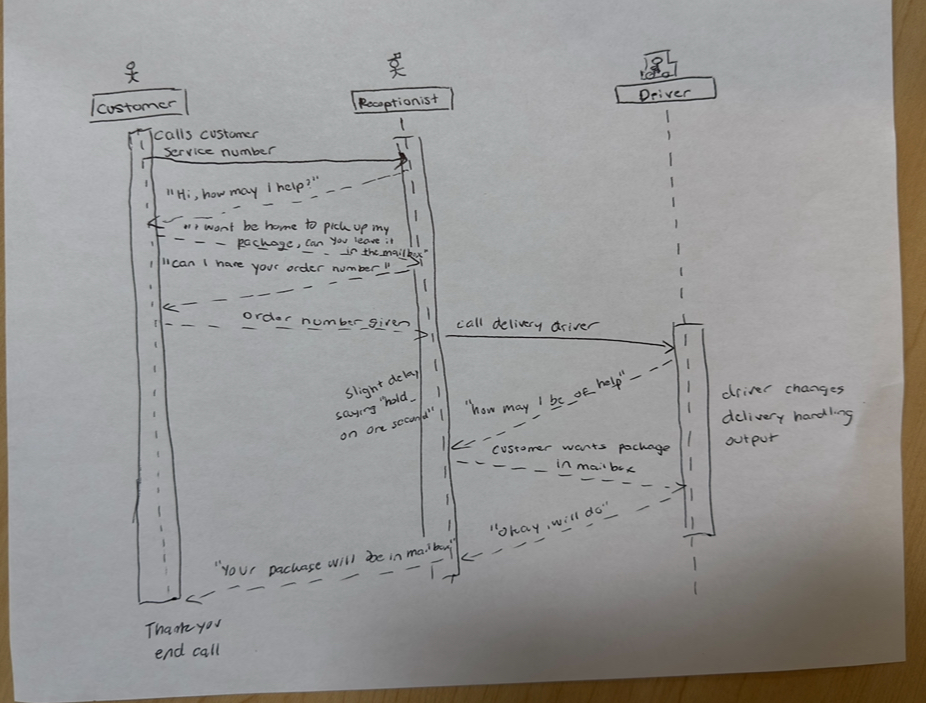 Customer
Receptionist
Driver
Calls customer
service number
"Hi, how may I help?"
"i wont be home to pick up my
package, can you leave it
in the mailbox"
"can I have your order number"
order number given
call delivery driver
slight delay
saying "hold
on one second"
"how may I be of help"
driver changes
delivery handling
output
customer wants package
in mailbox
"okay will do"
"Your package will be in mailbox"
Thank you
end call